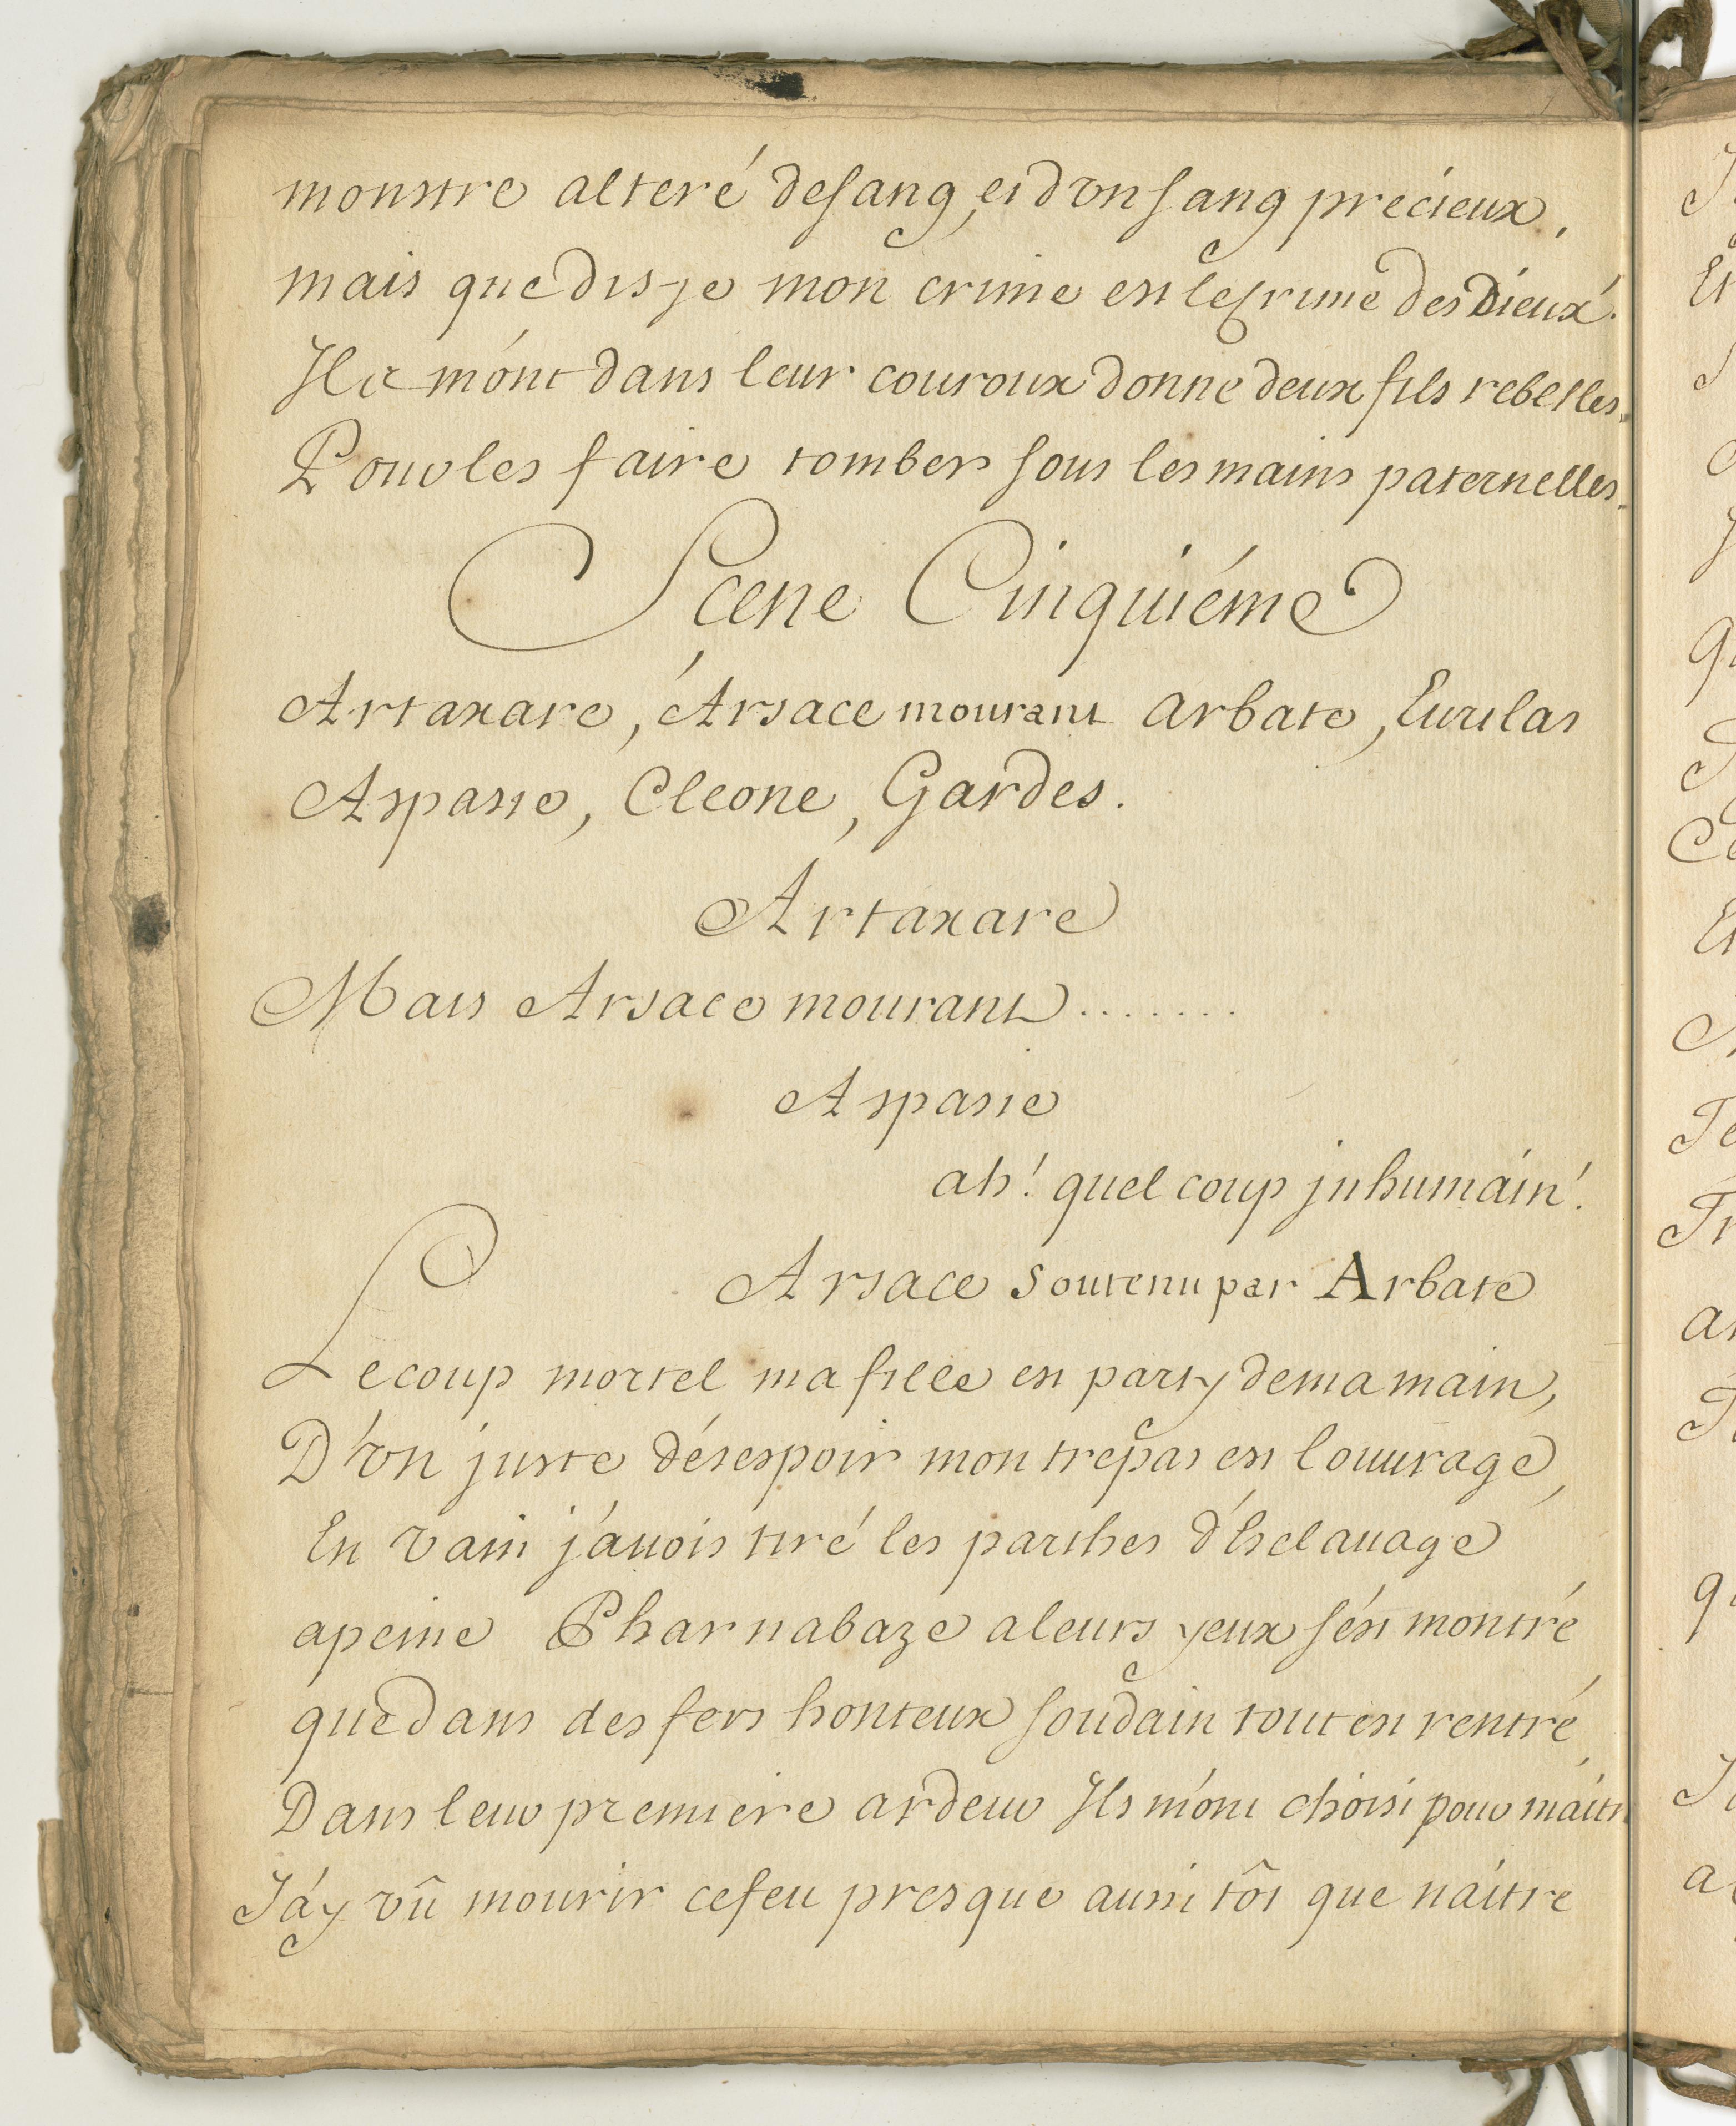 monstre alteré de sang, et d'vn sang précieux,
mais que dis-je mon crime est le crime des Dieux.
Ils m'ont dans leur couroux donné deux fils rebelles.
Pour les faire tomber sous les mains paternelles.
Scene Cinquiéme
Artaxare, Arsace mourant Arbate, Eurilas
Aspasie, Cleone, Gardes.
Artaxare
Mais Arsace mourant.......
Aspasie
ah! quel coup jnhumáin!
Arsace soutenu par Arbate
Le coup mortel ma fille est party de ma main,
D'vn juste désespoir mon trepas est l'ouurage,
En vain j'auois tiré les parthes d'Esclauage
apeine Pharnabaze a leurs yeux s'est montré
que dans des fers honteux soudain tout est rentré,
Dans leur premiere ardeur Ils m'ont choisi pour maitr
J'ay vû mourir ce feu presque aussi tôt que náitre